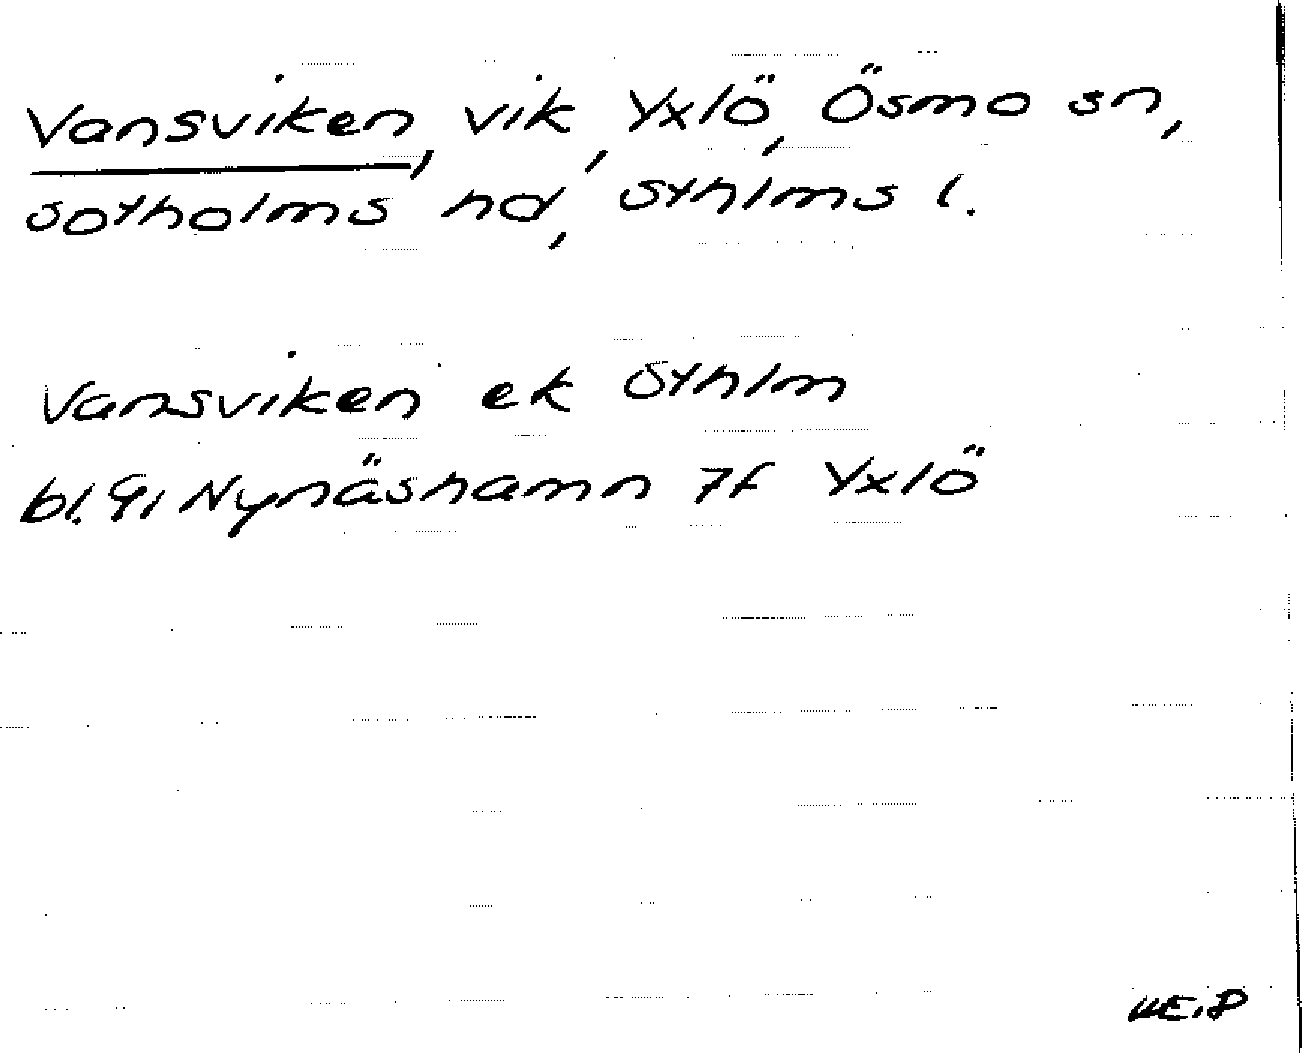 Vansviken, vik, Yxlö, Ösmo sn,
Sotholms hd, Sthlms l.
Vansviken ek Sthlm
bl. 91 Nynäshamn 7f Yxlö